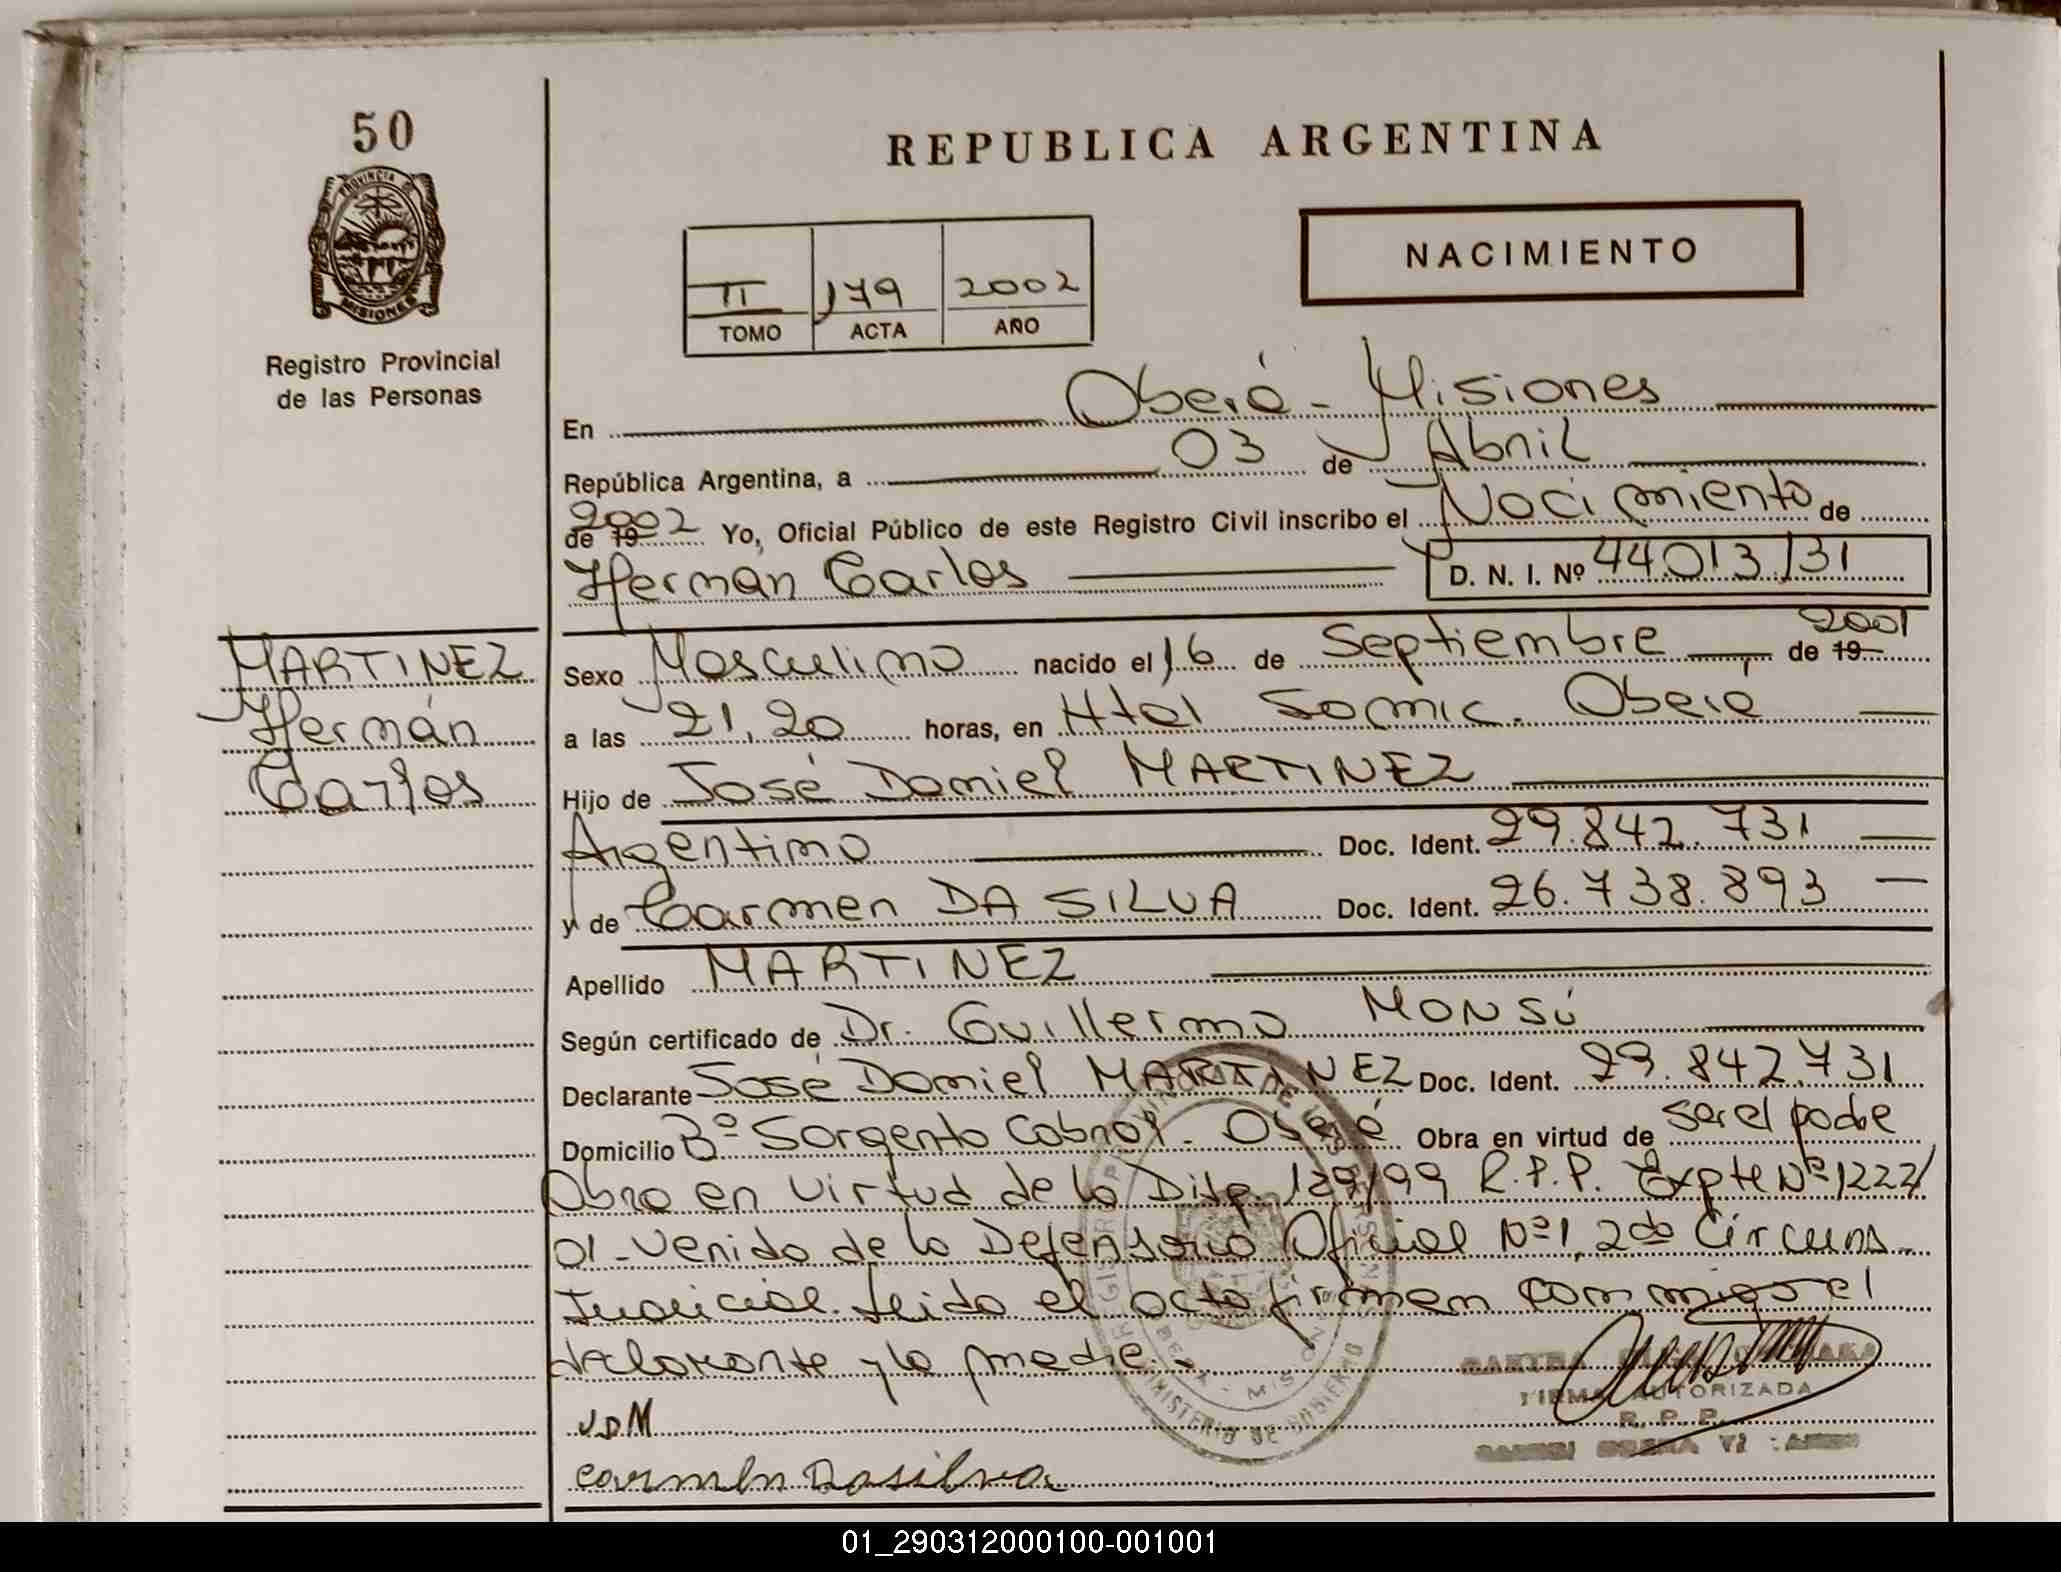 50
PROVINCIA DE
MISIONES
Registro Provincial
de las Personas
MARTINEZ
Hernán
Carlos
REPUBLICA ARGENTINA
NACIMIENTO
II 179 2002
TOMO ACTA AÑO
En Oberá - Misiones
República Argentina, a 03 de Abril
de 19 2002 Yo, Oficial Público de este Registro Civil inscribo el Nacimiento de
Hernán Carlos D. N. I. Nº 44.013.131
Sexo Masculino nacido el 16 de Septiembre de 19 2001
a las 21,20 horas, en Htal Samic. Oberá
Hijo de José Daniel MARTINEZ
Argentino Doc. Ident. 29.842.731
y de Carmen DA SILVA Doc. Ident. 26.738.893
Apellido MARTINEZ
Según certificado de Dr. Guillermo MONSÚ
Declarante José Daniel MARTINEZ Doc. Ident. 29.842.731
Domicilio Bº Sargento Cabral - Oberá Obra en virtud de ser el padre
Obra en virtud de la Disp. 129/99 R.P.P. Expte Nº 1222/
01 - venido de la Defensoría Oficial Nº 1, 2da Circuns.
Judicial. Leída el acta firman conmigo el
declarante y la madre.
JDM
Carmen Dasilva
FIRMA AUTORIZADA
R. P. P.
MINISTERIO DE GOBIERNO
01_290312000100-001001